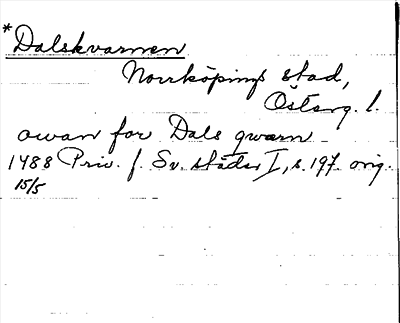 *Dalskvarnen
Norrköpings stad,
Österg. l.
owan for Dals qwarn
1488 Priv. f. Sv. städer I, s. 197. orig.
15/5